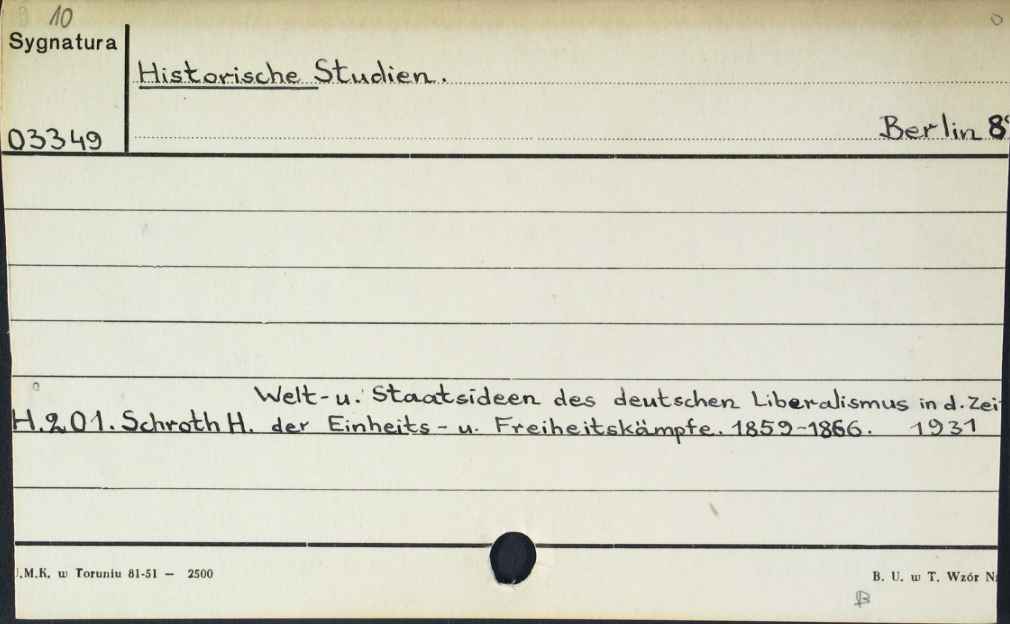 10
Sygnatura
Historische Studien.
Berlin 8°
03349
Welt- u. Staatsideen des deutschen Liberalismus in d. Zeit
H.201. Schroth H. der Einheits- u. Freiheitskämpfe. 1859-1866. 1931
.M.K. w Toruniu 81-51 — 2500
B. U. w T. Wzór N
B